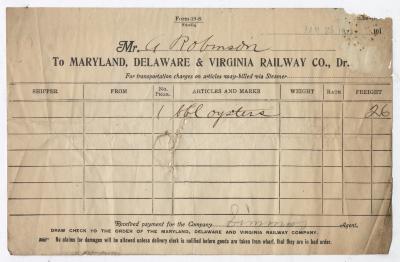 Form 19-S
Mr. A Robinson
To MARYLAND, DELAWARE & VIRGINIA RAILWAY CO., Dr.
For transportation charges on articles way-billed via Steamer
SHIPPER. FROM No. Pkgs. ARTICLES AND MARKS WEIGHT RATE FREIGHT
1 bbl oysters 26
Received payment for the Company Agent.
DRAW CHECK TO THE ORDER OF THE MARYLAND, DELAWARE AND VIRGINIA RAILWAY COMPANY.
No claims for damages will be allowed unless delivery clerk is notified before goods are taken from wharf, that they are in bad order.